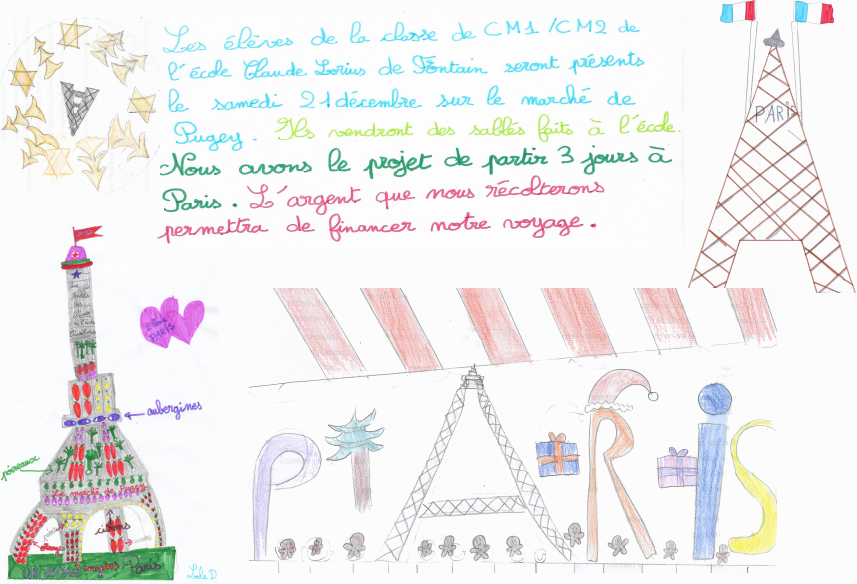 Les élèves de la classe de CM1/CM2 de
l'école Claude Lorius de Fontain seront présents
le samedi 21 décembre sur le marché de
Pugey. Ils vendront des sablés faits à l'école.
Nous avons le projet de partir 3 jours à
Paris. L'argent que nous récolterons
permettra de financer notre voyage.
PARIS
J'aime
PARIS
aubergines
poireaux
Le marché de Pugey
citrons
Paris
Lola D
PARIS